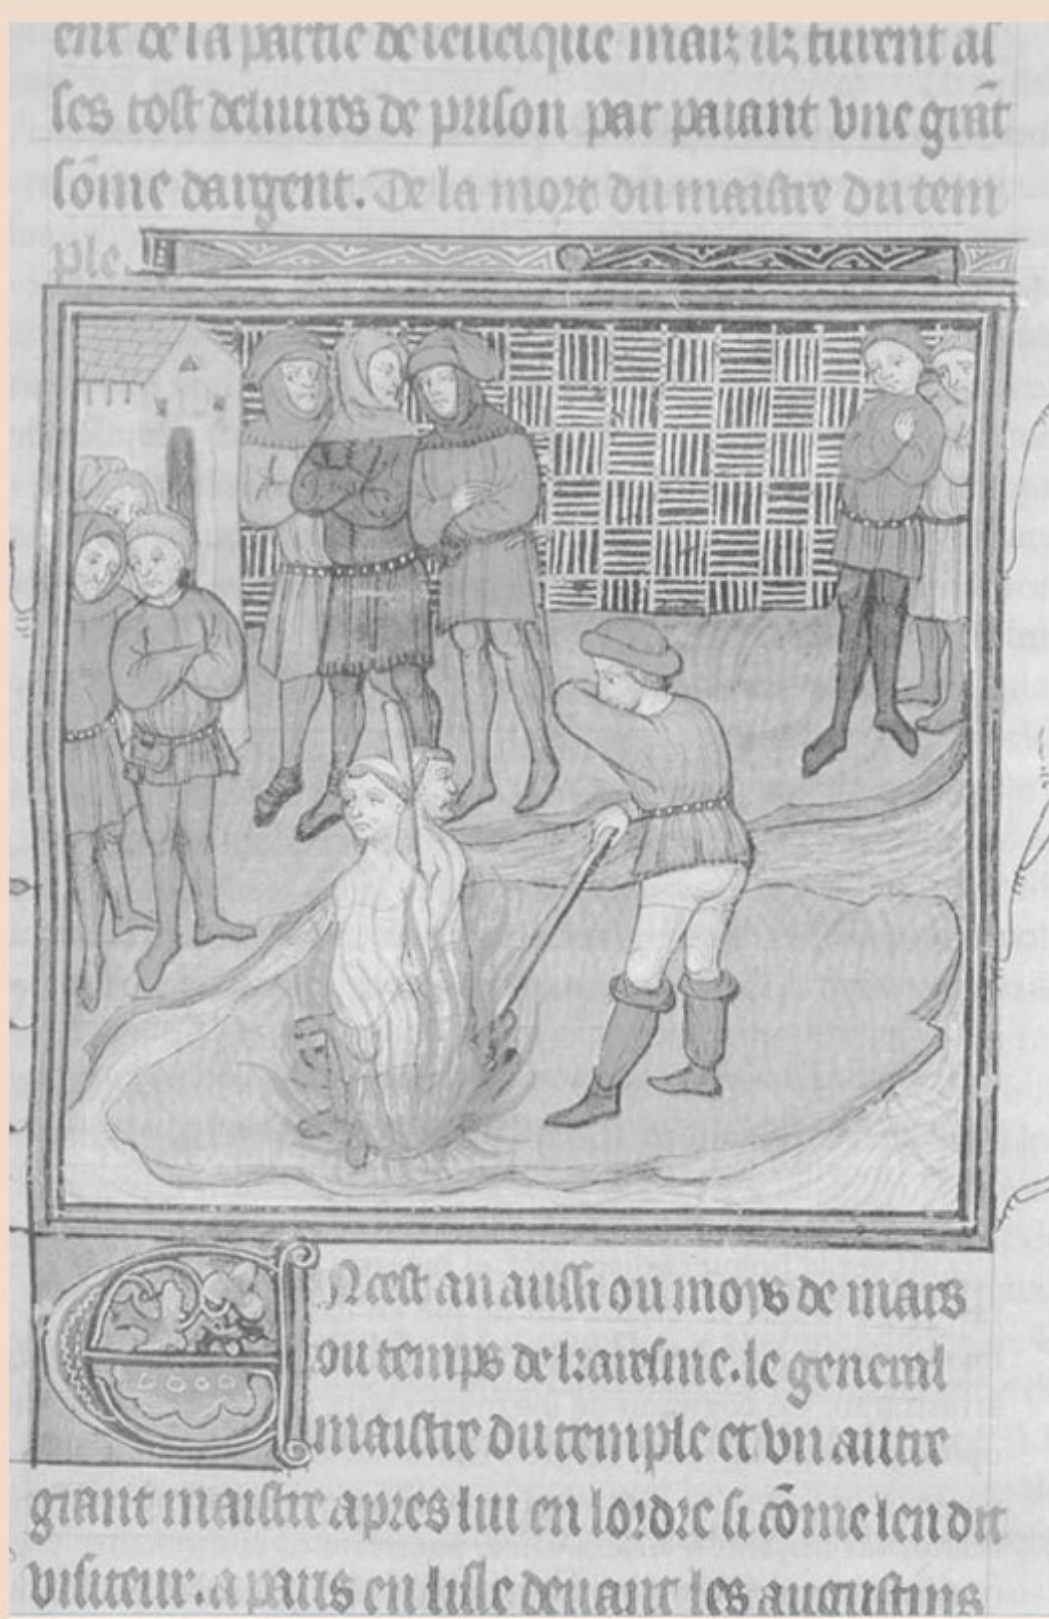 ent de la partie de leuesque mais ilz furent as
ses tost deliures de prison par paiant vne grāt
sōme dargent. De la mort du maistre du tem
ple.
En cest an aussi ou moys de mars
ou temps de karesme. le general
maistre du temple et vn autre
grant maistre apres lui en lordre si cōme len dit
visiteur. a paris en lisle deuant les augustins